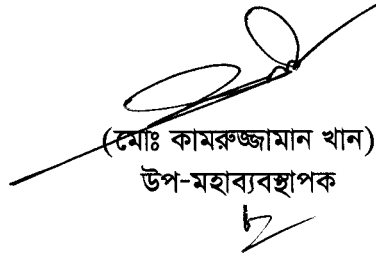 (মোঃ কামরুজ্জামান খান)
উপ-মহাব্যবস্থাপক